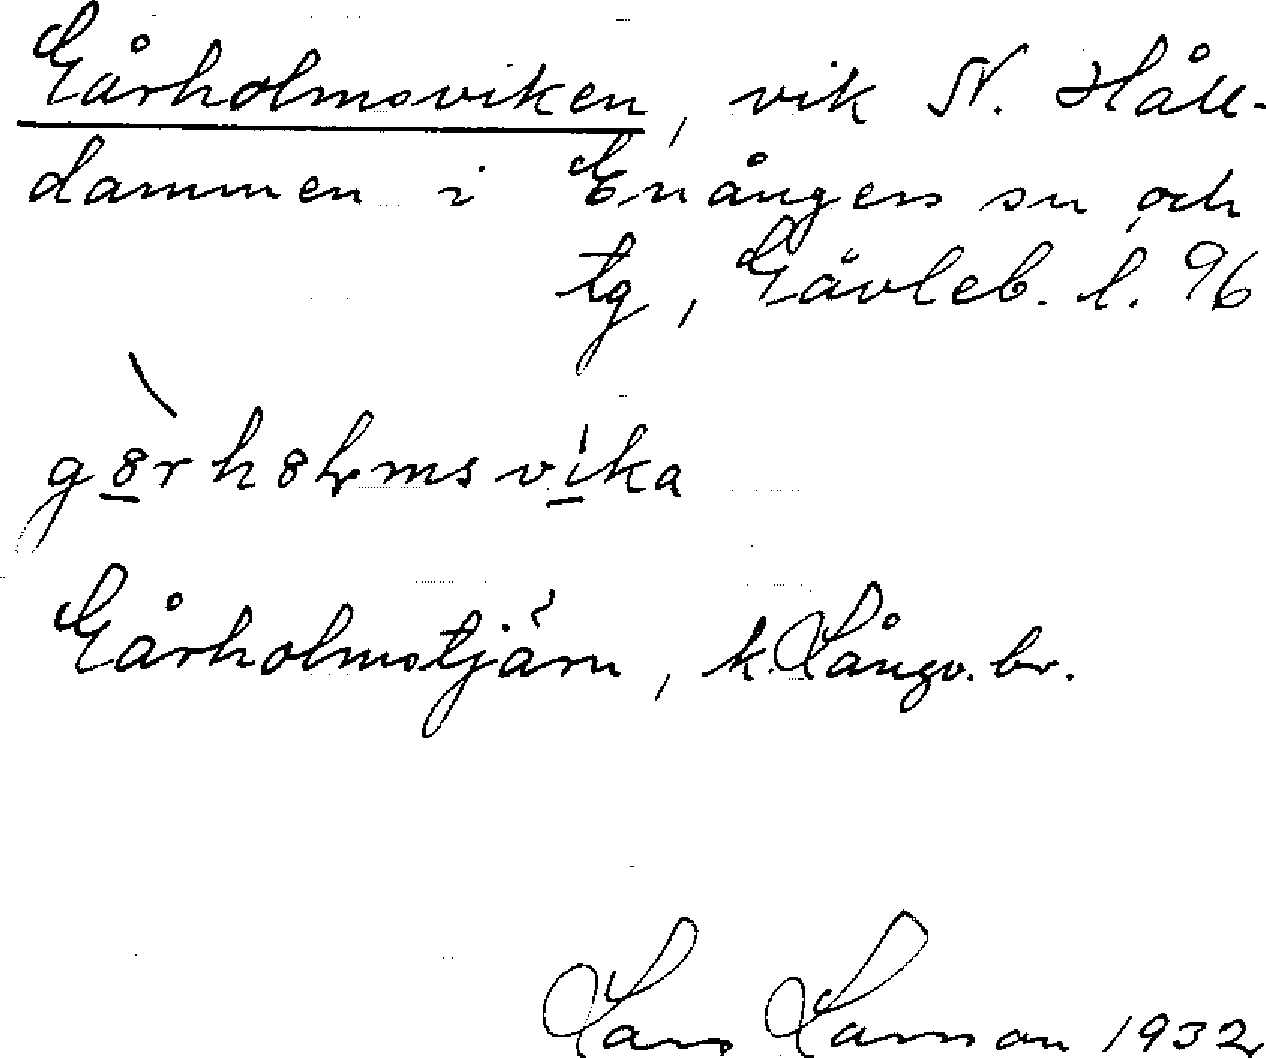 Gårholmsviken, vik N. Håll-
dammen i Enångers sn och
tg, Gävleb. l. 96
gòrholmsvika
Gårholmstjärn, k. Långv. br.
Lars Larsson 1932